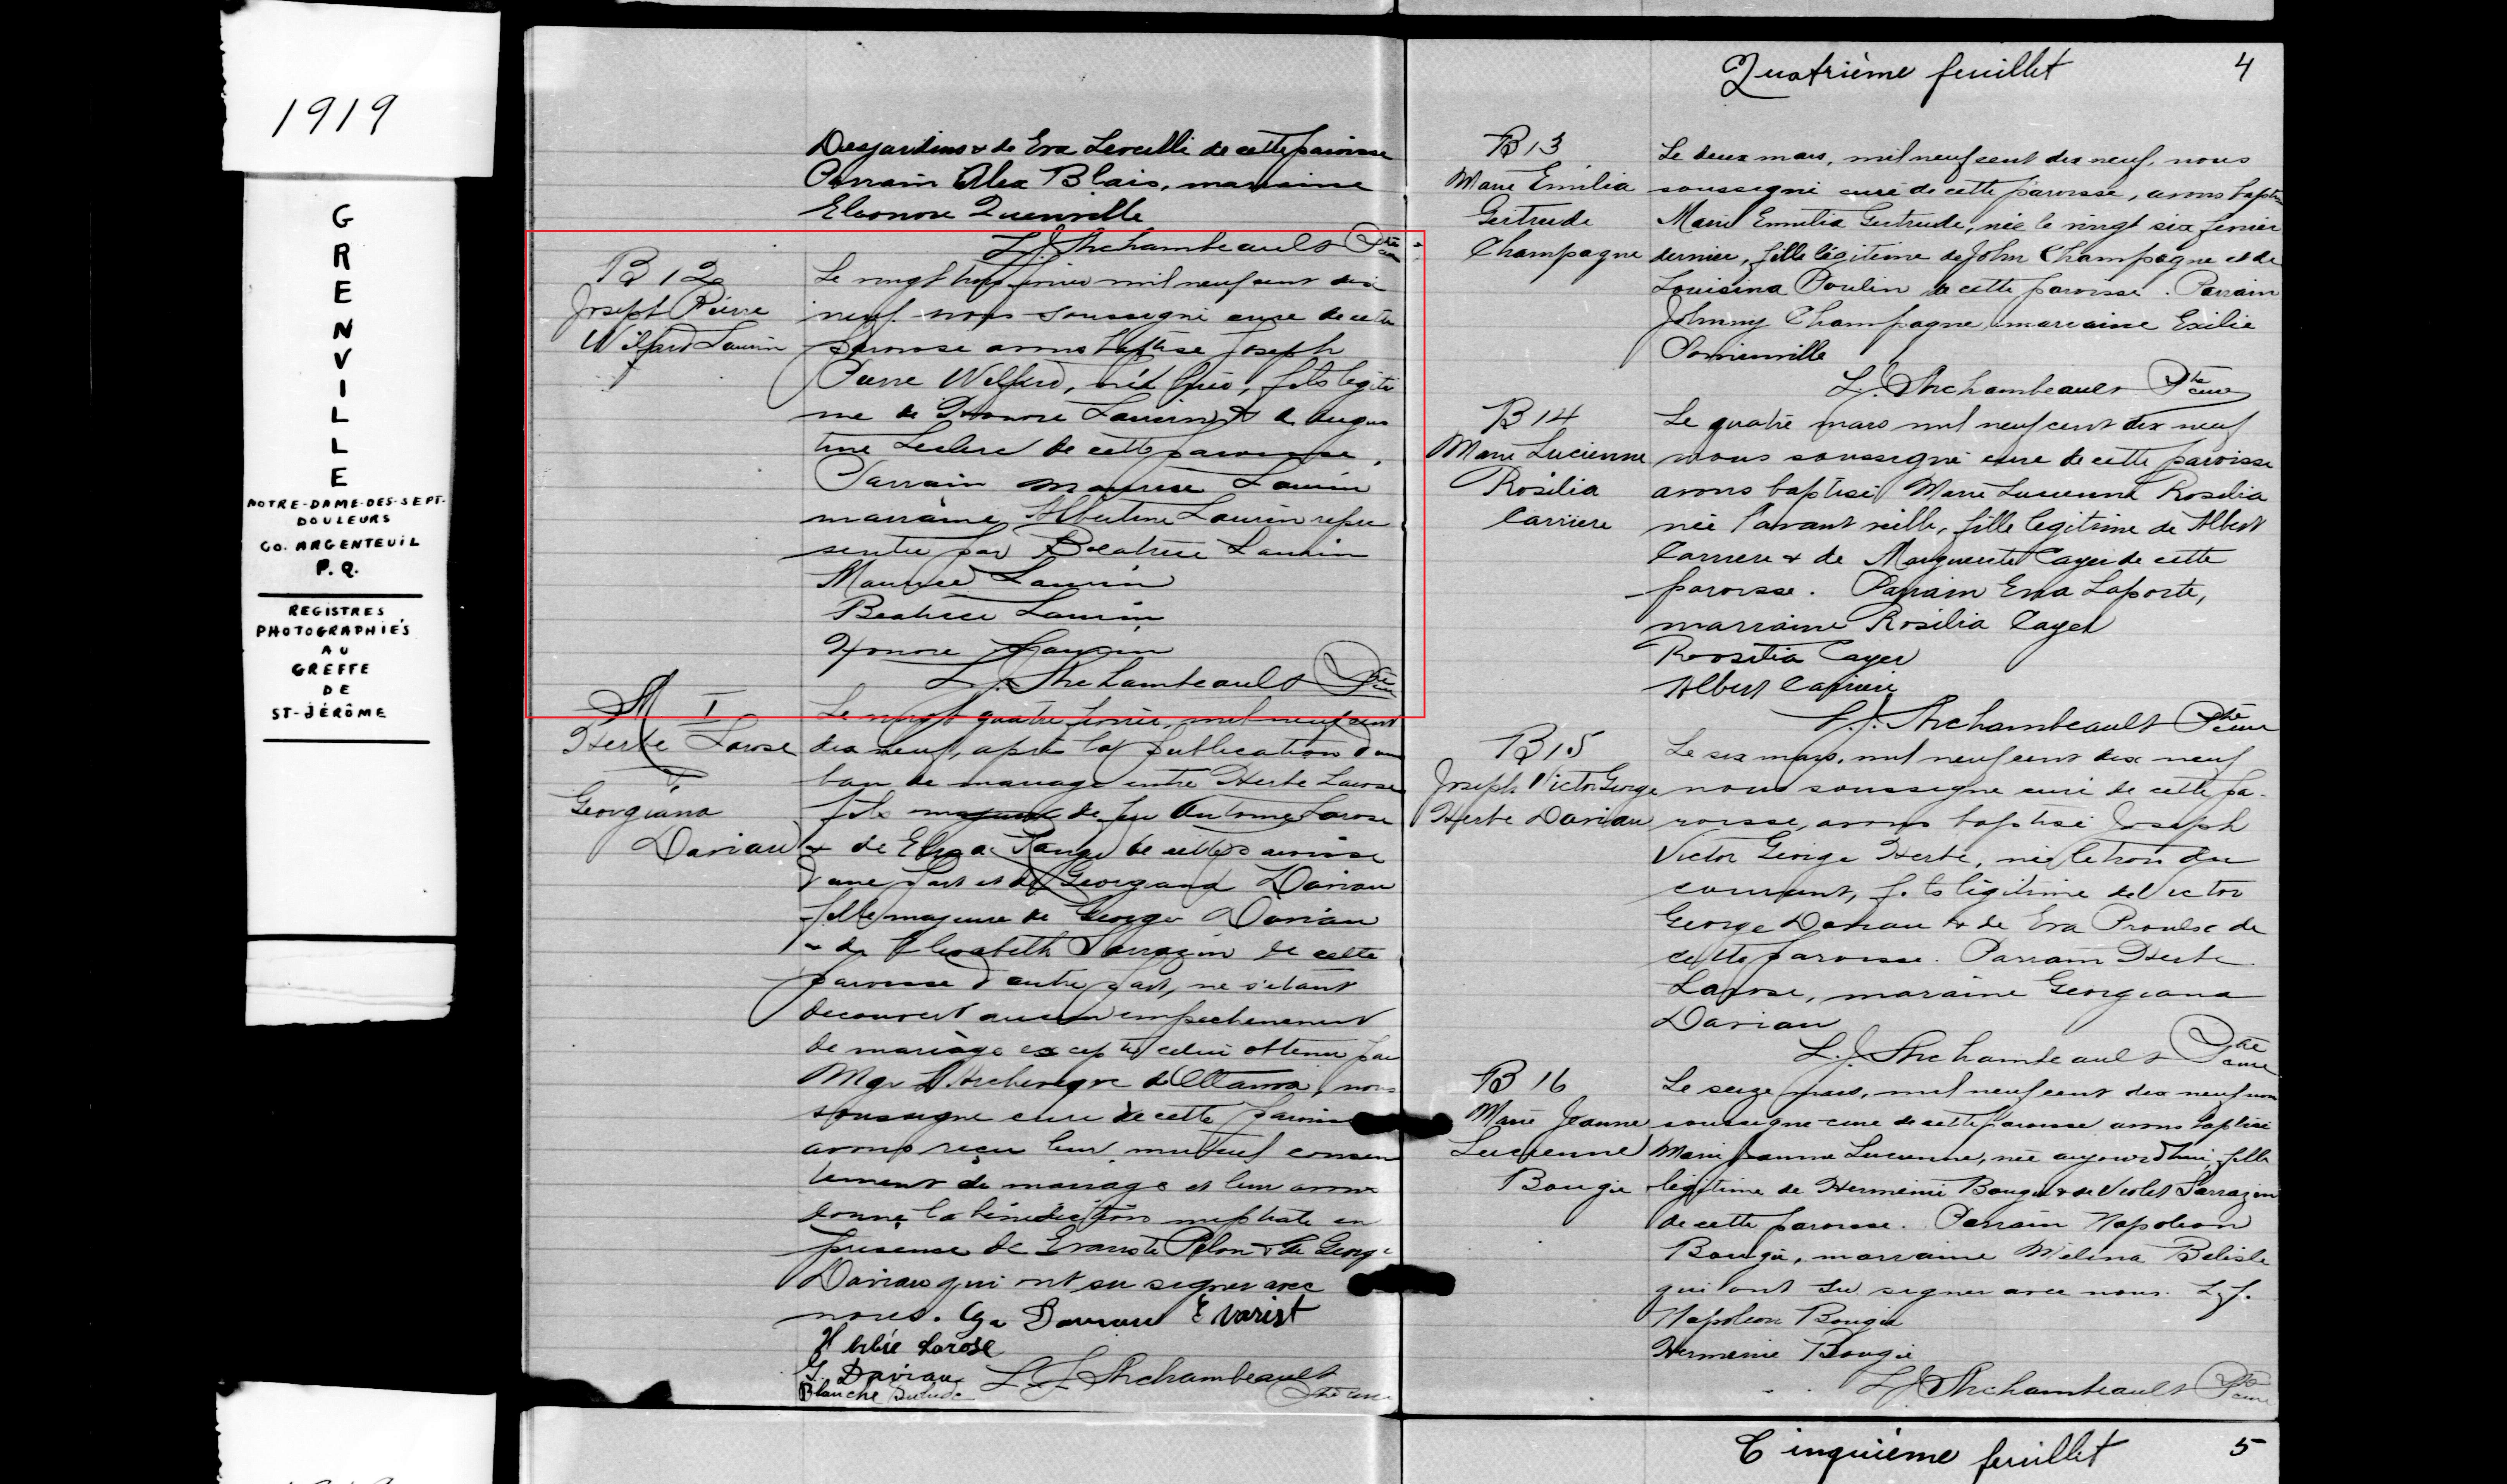 1919
GRENVILLE
NOTRE-DAME-DES-SEPT-
DOULEURS
CO. ARGENTEUIL
P.Q.
REGISTRES
PHOTOGRAPHIÉS
AU
GREFFE
DE
ST-JÉRÔME
Desjardins & de Eva Leroelli de cette paroisse
Parrain Alex Blais, marraine
Eleonore Quenville
L.J. Archambeault Ptre
B 12
Joseph Pierre
Wilfrid Laurin
Le vingt trois fevrier mil neuf cent dix
neuf nous soussigné curé de cette
paroisse avons baptise Joseph
Pierre Wilfrid, né hier, fils legiti
me de Honore Laurin & de Augus
tine Leclerc de cette paroisse.
Parrain Maurice Laurin
marraine Albertine Laurin repre
sentée par Beatrice Laurin
Maurice Laurin
Beatrice Laurin
Honore Laurin
L.J. Archambeault Ptre
M I
Herbe Larose
&
Georgiana
Dariau
Le vingt quatre fevrier, mil neuf cent
dix neuf, après la publication d'un
ban de mariage entre Herbe Larose
fils majeur de feu Antoine Larose
& de Eliza de cette paroisse
d'une part et de Georgiana Dariau
fille majeure de George Dariau
& de Elisabeth Sarrazin de cette
paroisse d'autre part, ne s'etant
decouvert aucun empechement
de mariage excepté celui obtenu par
Mgr L'Archeveque d'Ottawa, nous
soussigne curé de cette paroisse
avons reçu leur mutuel consen
tement de mariage et leur avons
donné la bénédiction nuptiale en
presence de Evariste Pilon & de George
Dariau qui ont su signer avec
nous. Evarist
Larose
G. Dariau L.J. Archambeault
Blanche Ptre curé
Quatrième feuillet 4
B 13
Marie Emilia
Gertrude
Champagne
Le deux mars, mil neuf cent dix neuf, nous
soussigné curé de cette paroisse, avons baptisé
Marie Emilia Gertrude, née le vingt six fevrier
dernier, fille légitime de John Champagne et de
Louisina Poulin de cette paroisse. Parrain
Johnny Champagne, marraine Exilie
L.J. Archambeault Ptre curé
B 14
Marie Lucienne
Rosilia
Carriere
Le quatre mars mil neuf cent dix neuf
nous soussigné curé de cette paroisse
avons baptisé Marie Lucienne Rosilia
née l'avant veille, fille legitime de Albert
Carriere & de Marguerite Cayer de cette
paroisse. Parrain Laporte,
marraine Rosilia Cayer
Roosilia Cayer
Albert Carriere
L.J. Archambeault Ptre curé
B 15
Joseph Victor George
Herbe Dariau
Le six mars, mil neuf cent dix neuf
nous soussigne curé de cette pa-
roisse, avons baptisé Joseph
Victor George Herbe, né le trois du
courant, fils légitime de Victor
George Dariau & de Eva Proulx de
cette paroisse. Parrain Herbe
Larose, maraine Georgiana
Dariau
L.J. Archambeault Ptre curé
B 16
Marie Jeanne
Lucienne
Bougie
Le seize mars, mil neuf cent dix neuf nous
soussigne curé de cette paroisse avons baptisé
Marie Jeanne Lucienne, née aujourd'hui, fille
legitime de Hermenie Bougie & de Violet Sarrazin
de cette paroisse. Parrain Napoleon
Bougie, marraine Melina Belisle
qui ont su signer avec nous. L.J.
Napoleon Bougie
Hermenie Bougie
L.J. Archambeault Ptre curé
Cinquième feuillet 5